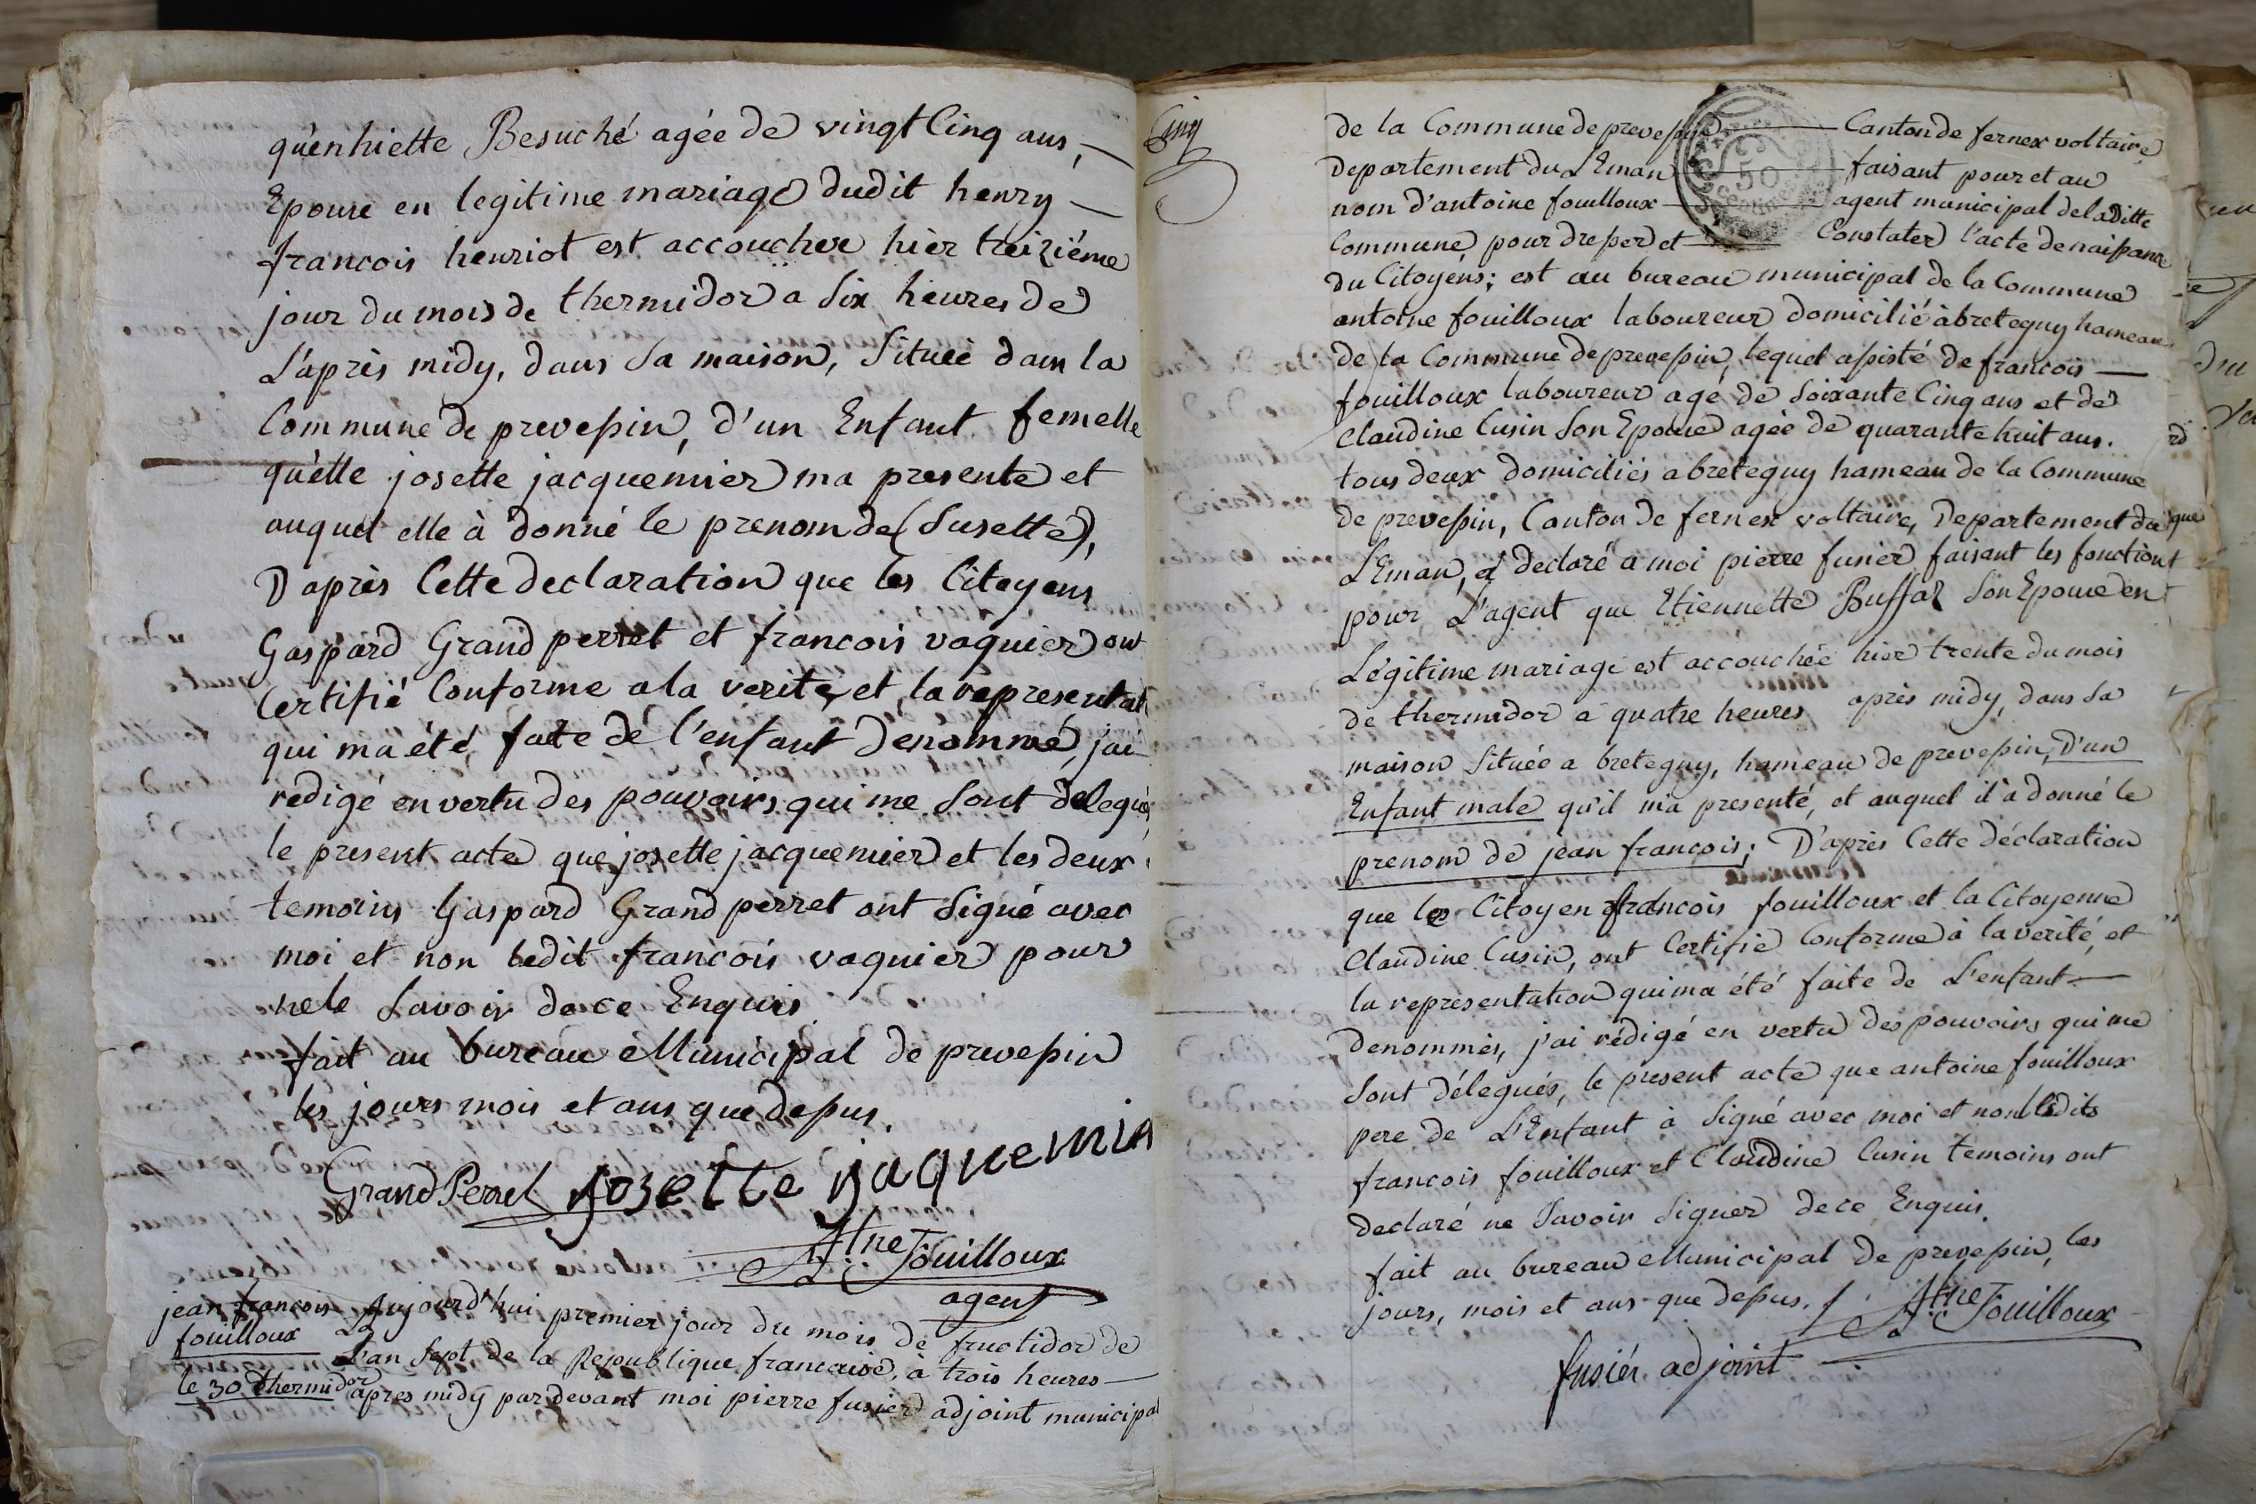 qu'enhiette Besuché agée de vingt Cinq ans,
Epouse en legitime mariage dudit henry
francois henriot est accouchee hier treiziéme
jour du mois de thermidor a Six heures de
L'après midy, dans Sa maison, Située dans la
Commune de prevessin, d'un Enfant femelle
qu'elle josette jacquemier ma presenté et
auquel elle à donné le prenom de (Susette),
D'après Cette declaration que les Citoyens
Gaspard Grand perret et francois vaquier ont
Certifié Conforme a la verité, et la representat
qui ma été faite de l'enfant denommé, j'ai
rédigé en vertu des pouvoirs qui me Sont delegués
le present acte que josette jacquemier et les deux
temoins Gaspard Grand perret ont Signé avec
moi et non ledit francois vaquier pour
ne le Savoir de ce Enquis
fait au bureau Municipal de prevessin
les jours mois et ans que dessus.
Grand Perret Josette jaquemier
Atne Fouilloux
agent
jean francois
fouilloux
le 30 thermidor
Aujourd'hui premier jour du mois de fructidor de
L'an Sept de la Republique francaise, à trois heures
apres midy par devant moi pierre fusier adjoint municipal
Cinq
50
de la Commune de prevessin Canton de fernex voltaire,
departement du Leman faisant pour et au
nom d'antoine fouilloux agent municipal de laditte
Commune, pour dresser et Constater l'acte de naissance
du Citoyens; est au bureau municipal de la Commune
antoine fouilloux laboureur domicilié à bretegny hameau
de la Commune de prevessin, lequel assisté de francois
fouilloux laboureur agé de Soixante Cinq ans et de
Claudine Cusin Son Epouse agée de quarante huit ans.
tous deux domiciliés a bretegny hameau de la Commune
de prevessin, Canton de fernex voltaire, Departement du
LEman, a declaré a moi pierre fusier faisant les fonctions
pour L'agent que Etiennette Buffaz Son Epouse en
Légitime mariage est accouchée hier trente du mois
de thermidor a quatre heures après midy, dans Sa
maison Située a bretegny, hameau de prevessin, D'un
Enfant male qu'il m'a presenté, et auquel il à donné le
prenom de jean francois; D'après Cette déclaration
que le Citoyen francois fouilloux et la Citoyenne
Claudine Cusin, ont Certifié Conforme à la verité, et
la representation qui ma été faite de L'enfant
denommés, j'ai rédigé en vertu des pouvoirs qui me
Sont délegués, le present acte que antoine fouilloux
pere de L'Enfant à Signé avec moi et non ledits
francois fouilloux et Claudine Cusin temoins ont
declaré ne Savoir Signer de ce Enquis.
fait au bureau Municipal de prevessin, les
jours, mois et ans que dessus. Atne Fouilloux
fusier adjoint